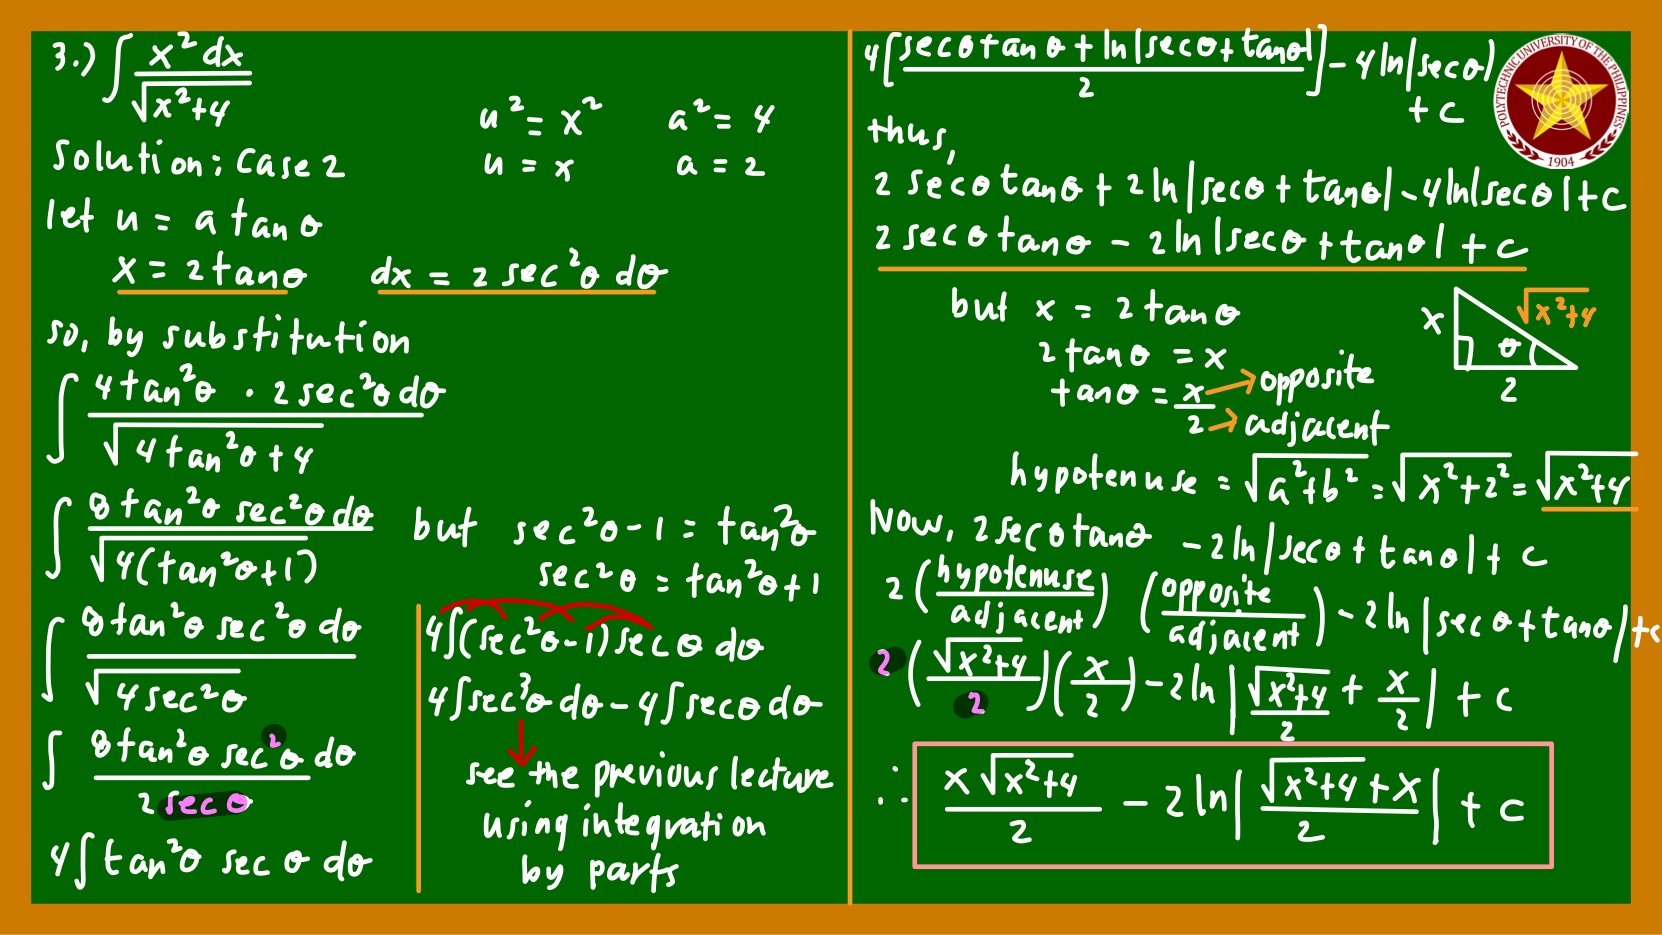 3.) ∫ x² dx / √(x²+4)
u² = x²   a² = 4
Solution: Case 2   u = x   a = 2
let u = a tan θ
x = 2 tan θ   dx = 2 sec²θ dθ
so, by substitution
∫ 4 tan²θ · 2 sec²θ dθ / √(4 tan²θ + 4)
∫ 8 tan²θ sec²θ dθ / √(4(tan²θ+1))
∫ 8 tan²θ sec²θ dθ / √(4 sec²θ)
∫ 8 tan²θ sec²θ dθ / 2 sec θ
4∫ tan²θ sec θ dθ
but sec²θ - 1 = tan²θ
sec²θ = tan²θ + 1
4∫(sec²θ - 1) sec θ dθ
4∫sec³θ dθ - 4∫sec θ dθ
see the previous lecture
using integration
by parts
4[(sec θ tan θ + ln|sec θ + tan θ|) / 2] - 4 ln|sec θ|
+ c
thus,
2 sec θ tan θ + 2 ln|sec θ + tan θ| - 4 ln|sec θ| + c
2 sec θ tan θ - 2 ln|sec θ + tan θ| + c
but x = 2 tan θ
2 tan θ = x
tan θ = x/2 → opposite
→ adjacent
x √(x²+4) θ 2
hypotenuse = √(a²+b²) = √(x²+2²) = √(x²+4)
Now, 2 sec θ tan θ - 2 ln|sec θ + tan θ| + c
2 (hypotenuse / adjacent) (opposite / adjacent) - 2 ln|sec θ + tan θ| + c
2 (√(x²+4) / 2)(x/2) - 2 ln|√(x²+4)/2 + x/2| + c
∴ x√(x²+4) / 2 - 2 ln|(√(x²+4) + x) / 2| + c
POLYTECHNIC UNIVERSITY OF THE PHILIPPINES
1904